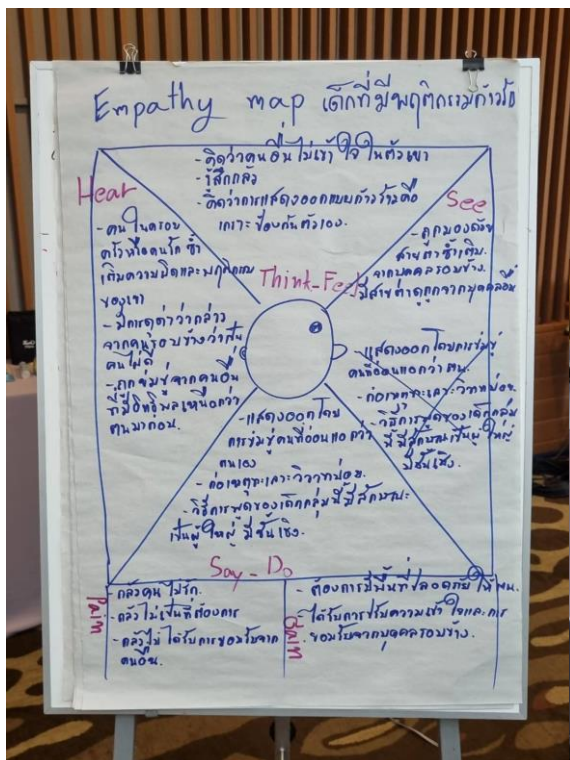 Empathy map เด็กที่มีพฤติกรรมก้าวร้าว
- คิดว่าคนอื่นไม่เข้าใจในตัวเขา
- รู้สึกกลัว
- คิดว่าการแสดงออกแบบก้าวร้าวคือ
เกราะป้องกันตัวเอง.
Think-Feel
Hear
- คนในครอบ
ครัวหรือคนใกล้ ซ้ำ
เติมความผิดและพฤติกรรม
ของเขา
- มีการดุด่าว่ากล่าว
จากคนรอบข้างว่าเป็น
คนไม่ดี
- ถูกข่มขู่จากคนอื่น
ที่มีอิทธิพลเหนือกว่า
ตนมาก่อน.
See
- ถูกมองด้วย
สายตาซ้ำเติม
จากบุคคลรอบข้าง.
มีสายตาดูถูกจากบุคคลอื่น
แสดงออกโดยการข่มขู่
คนที่อ่อนแอกว่าตน.
- ก่อเหตุทะเลาะวิวาทบ่อย.
- วิธีการพูดของเด็กกลุ่ม
นี้มีลักษณะเป็นผู้ใหญ่
มีชั้นเชิง.
- แสดงออกโดย
การข่มขู่คนที่อ่อนแอกว่า
ตนเอง
- ก่อเหตุทะเลาะวิวาทบ่อย.
- วิธีการพูดของเด็กกลุ่มนี้มีลักษณะ
เป็นผู้ใหญ่ มีชั้นเชิง.
Say-Do
Pain
- กลัวคนไม่รัก.
- กลัวไม่เป็นที่ต้องการ
- กลัวไม่ได้รับการยอมรับจาก
คนอื่น.
Gain
- ต้องการมีพื้นที่ปลอดภัยให้ตน.
- ได้รับการปรับความเข้าใจและการ
ยอมรับจากบุคคลรอบข้าง.